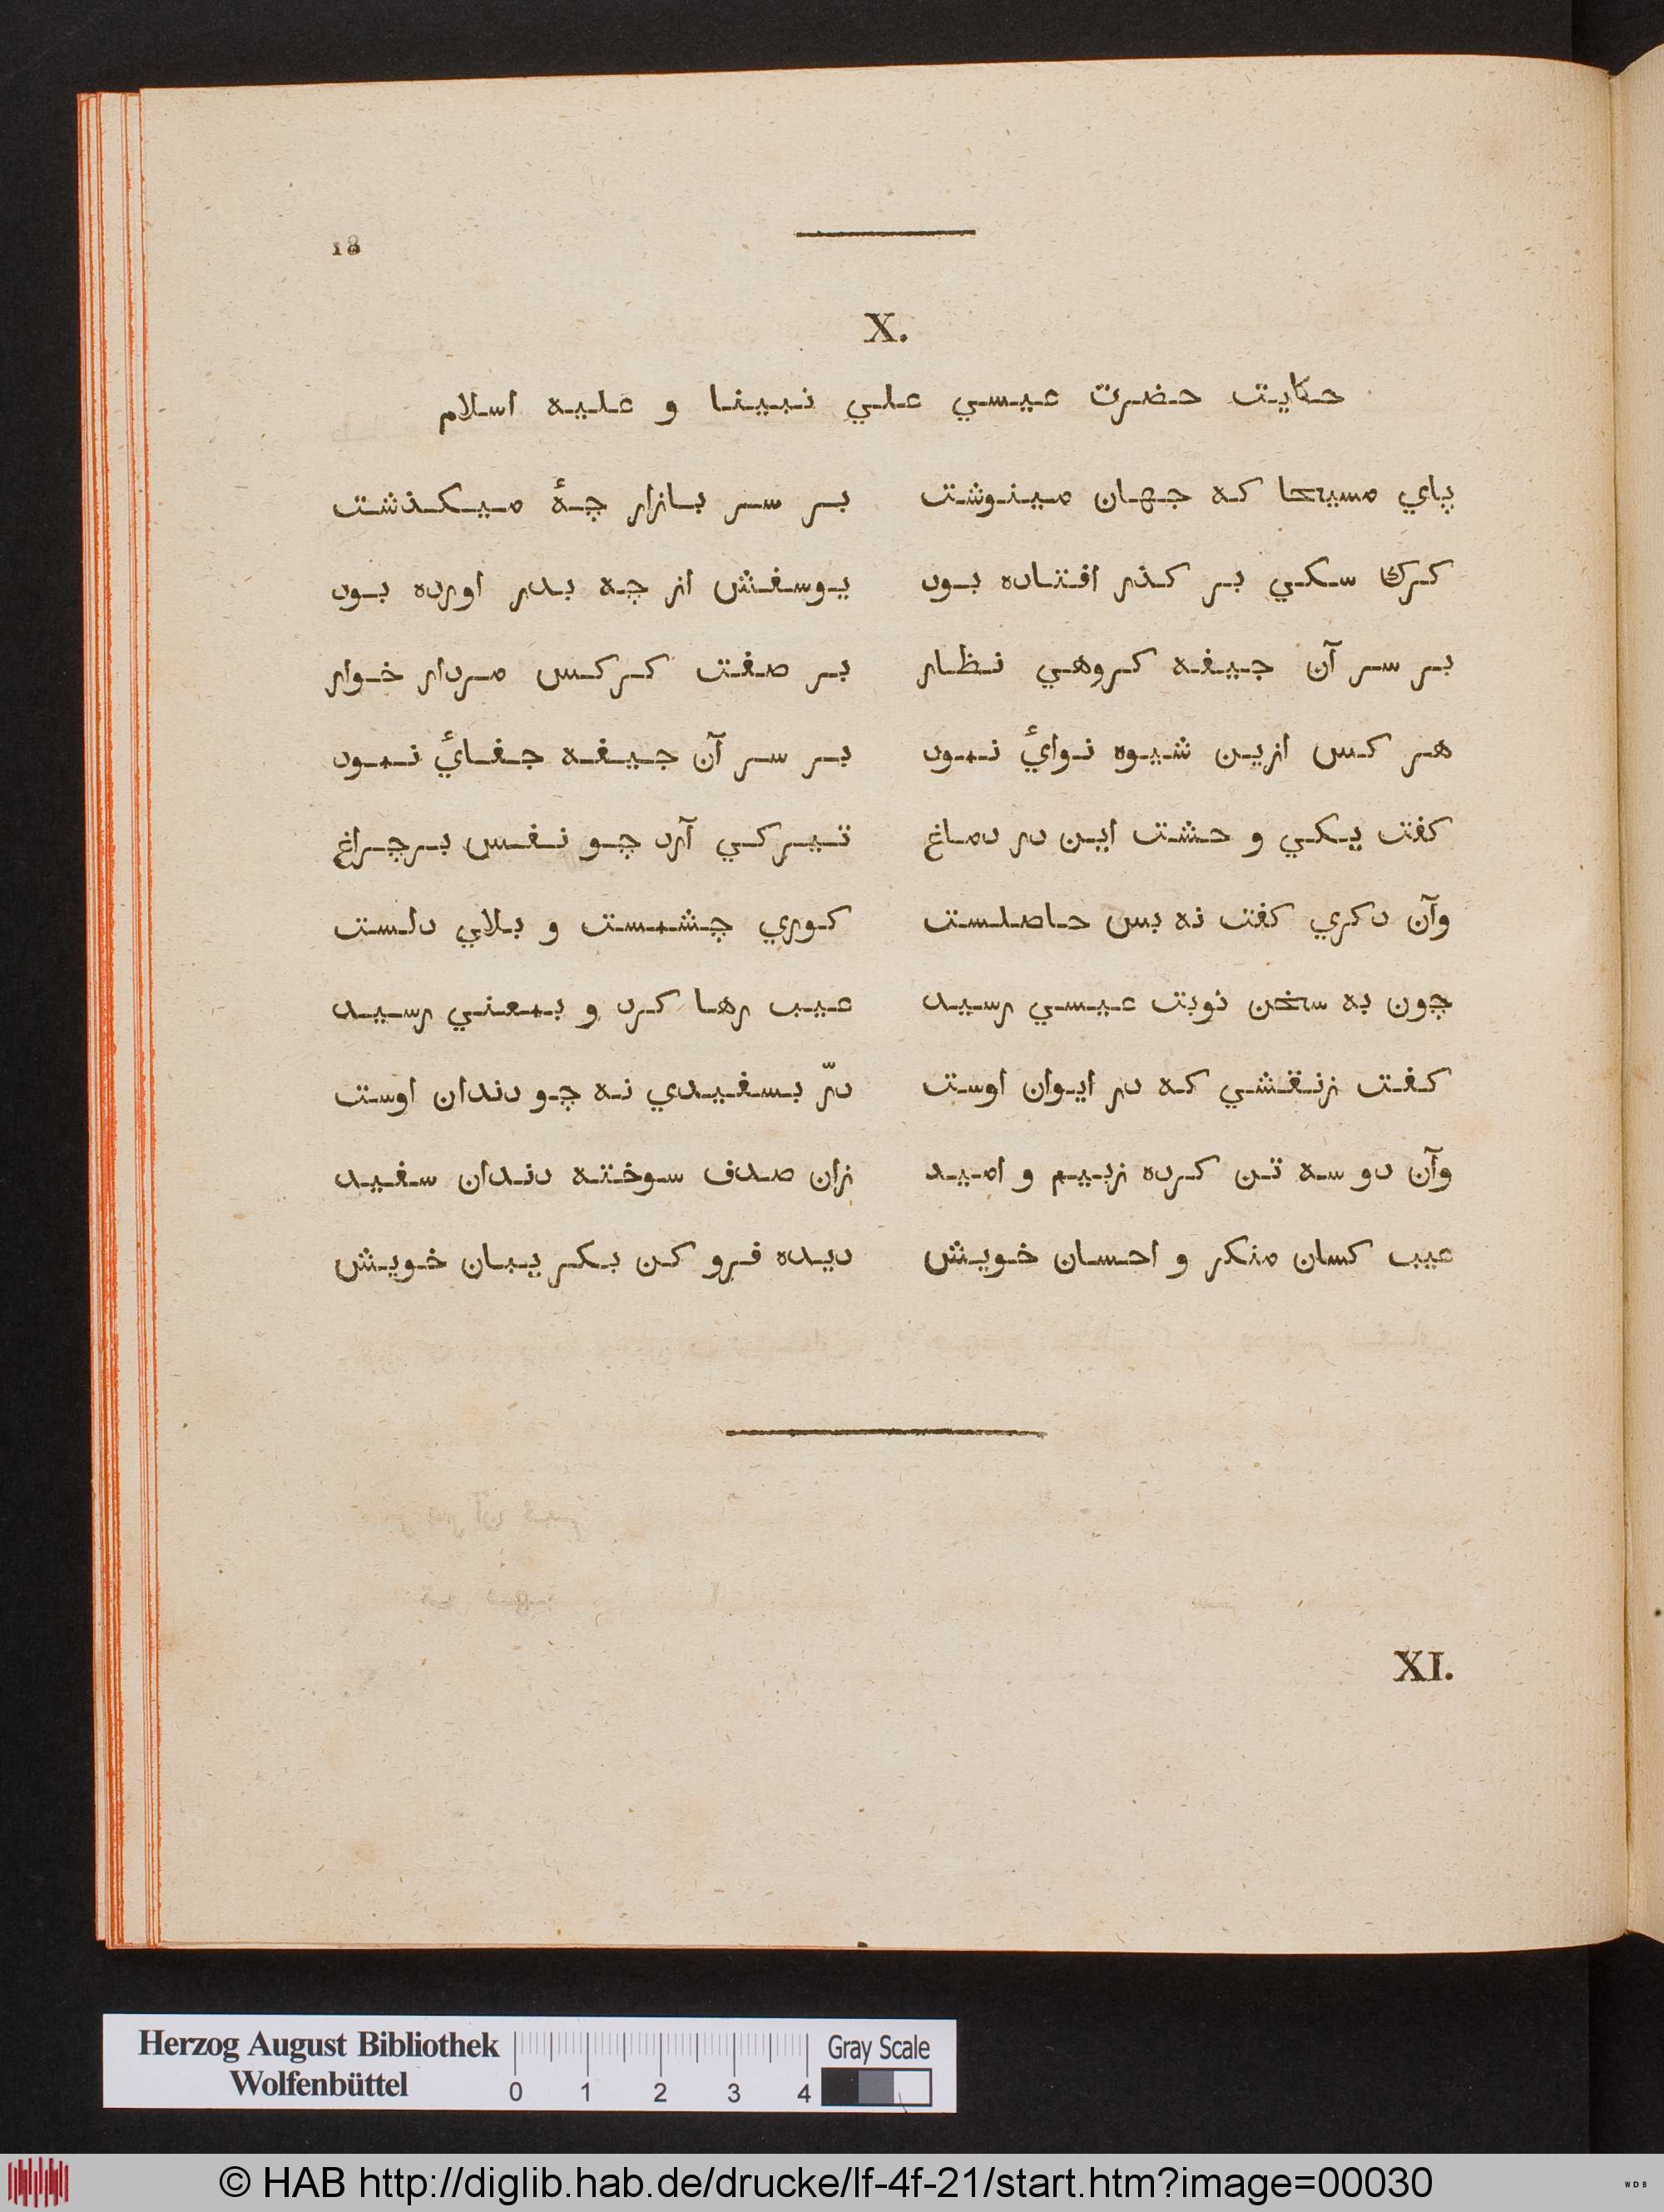 18
X.
حكايت حضرت عيسي علي نبينا و عليه اسلام
پاي مسيحا كه جهان مينوشت بر سر بازار چۀ ميكذشت
كرك سكي بر كذر افتاده بود يوسفش از چه بدر اورده بود
بر سر آن جيفه كروهي نظار بر صفت كركس مردار خوار
هر كس ازين شيوه نوائ نمود بر سر آن جيفه جفائ نمود
كفت يكي و حشت اين در دماغ تيركي آرد چو نفس برچراغ
وآن دكري كفت نه بس حاصلست كوري چشمست و بلاي دلست
چون به سخن نوبت عيسي رسيد عيب رها كرد و بمعني رسيد
كفت زنقشي كه در ايوان اوست درّ بسفيدي نه چو دندان اوست
وآن دو سه تن كرده زبيم و اميد زان صدف سوخته دندان سفيد
عيب كسان منكر و احسان خويش ديده فرو كن بكر يبان خويش
XI.
Herzog August Bibliothek
Wolfenbüttel
0 1 2 3 4
Gray Scale
© HAB http://diglib.hab.de/drucke/lf-4f-21/start.htm?image=00030
WDB